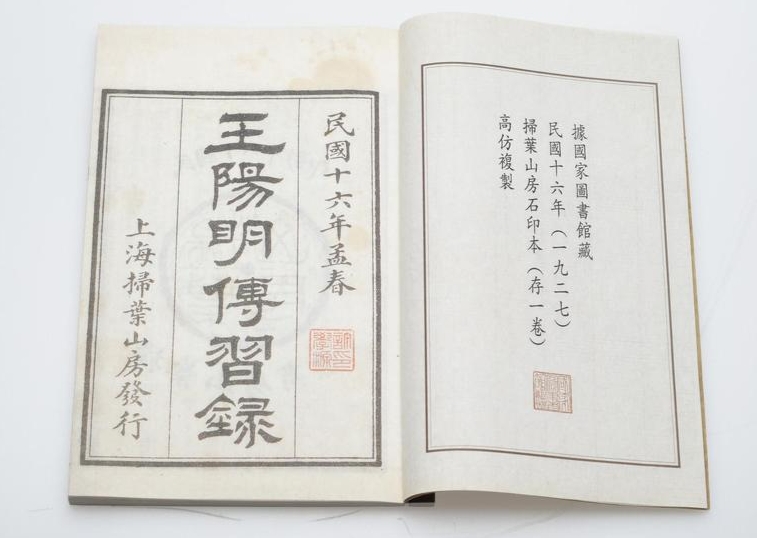 據國家圖書館藏
民國十六年（一九二七）
掃葉山房石印本（存一卷）
高仿複製
民國十六年孟春
王陽明傳習録
上海掃葉山房發行